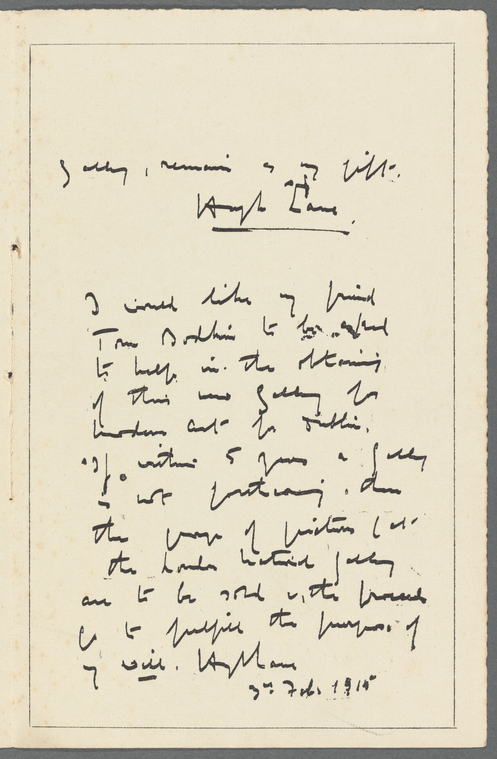 Gallery, remain as my gift.
Hugh Lane.
I would like my friend
Tom Bodkin to be asked
to help in the obtaining
of this new Gallery for
modern art for Dublin.
"If within 5 years a Gallery
is not forthcoming, then
the group of pictures (at
the London National Gallery
are to be sold & the proceeds
go to fulfill the purpose of
my will. Hugh Lane
3rd Feb. 1915